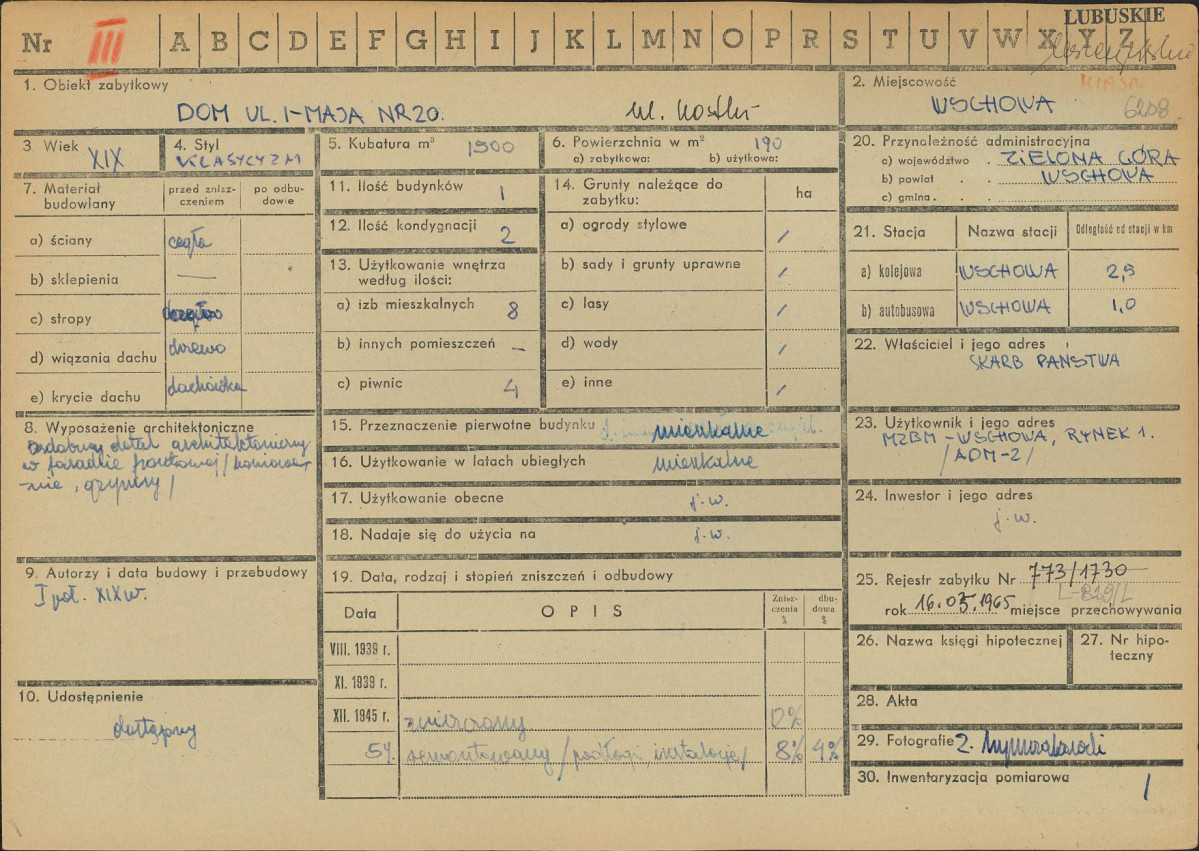 LUBUSKIE
Nr III A B C D E F G H I J K L M N O P R S T U V W X Y Z
MIASTO
6208
1. Obiekt zabytkowy
DOM UL. 1-MAJA NR 20.
ul. Kostki
2. Miejscowość
WSCHOWA
3. Wiek XIX
4. Styl
KLASYCYZM
5. Kubatura m³ 1500
6. Powierzchnia w m² 190
a) zabytkowa: b) użytkowa:
7. Materiał budowlany
przed zniszczeniem
po odbudowie
a) ściany cegła
b) sklepienia —
c) stropy
d) wiązania dachu drewno
e) krycie dachu dachówka
8. Wyposażenie architektoniczne
ozdobny detal architektoniczny
w fasadzie frontowej /
gzymsy /
9. Autorzy i data budowy i przebudowy
I poł. XIX w.
10. Udostępnienie
dostępny
11. Ilość budynków 1
12. Ilość kondygnacji 2
13. Użytkowanie wnętrza
według ilości:
a) izb mieszkalnych 8
b) innych pomieszczeń –
c) piwnic 4
14. Grunty należące do
zabytku:
ha
a) ogrody stylowe /
b) sady i grunty uprawne /
c) lasy /
d) wody /
e) inne /
15. Przeznaczenie pierwotne budynku mieszkalne
16. Użytkowanie w latach ubiegłych mieszkalne
17. Użytkowanie obecne j.w.
18. Nadaje się do użycia na j.w.
19. Data, rodzaj i stopień zniszczeń i odbudowy
Data
OPIS
Zniszczenia %
dbudowa %
VIII. 1939 r.
XI. 1939 r.
XII. 1945 r. zniszczony 12%
59. remontowany / podłogi, instalacje / 8% 4%
20. Przynależność administracyjna
a) województwo ZIELONA GÓRA
b) powiat WSCHOWA
c) gmina
21. Stacja
Nazwa stacji
Odległość od stacji w km
a) kolejowa WSCHOWA 2,5
b) autobusowa WSCHOWA 1,0
22. Właściciel i jego adres
SKARB PAŃSTWA
23. Użytkownik i jego adres
MZBM - WSCHOWA, RYNEK 1.
/ADM-2/
24. Inwestor i jego adres
j.w.
25. Rejestr zabytku Nr 773/1730
rok 16.03.1965 miejsce przechowywania
26. Nazwa księgi hipotecznej
27. Nr hipoteczny
28. Akta
29. Fotografie
30. Inwentaryzacja pomiarowa /